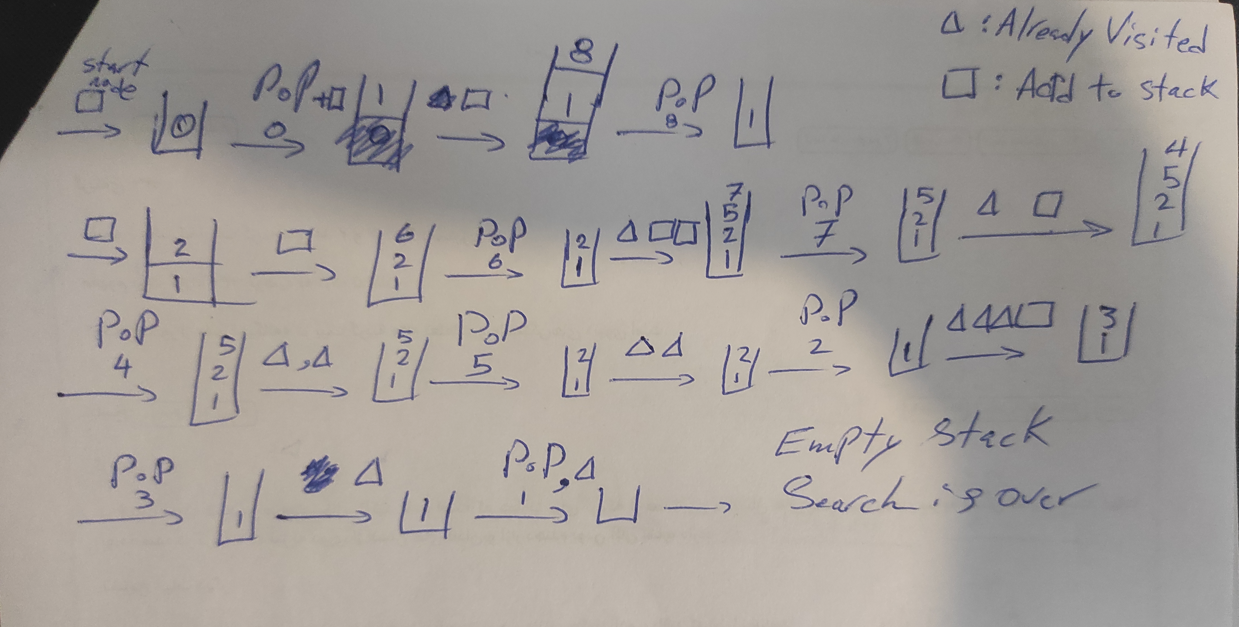 Δ : Already Visited
□ : Add to stack
start node
□ 0 PoP+□ 0 1 □ 8 1 PoP 8 1
□ 2 1 □ 6 2 1 PoP 6 2 1 Δ □□ 7 5 2 1 PoP 7 5 2 1 Δ □ 4 5 2 1
PoP 4 5 2 1 Δ,Δ 5 2 1 PoP 5 2 1 Δ Δ 2 1 PoP 2 1 ΔΔΔ□ 3 1
PoP 3 1 Δ 1 PoP,Δ 1
Empty stack
Search is over